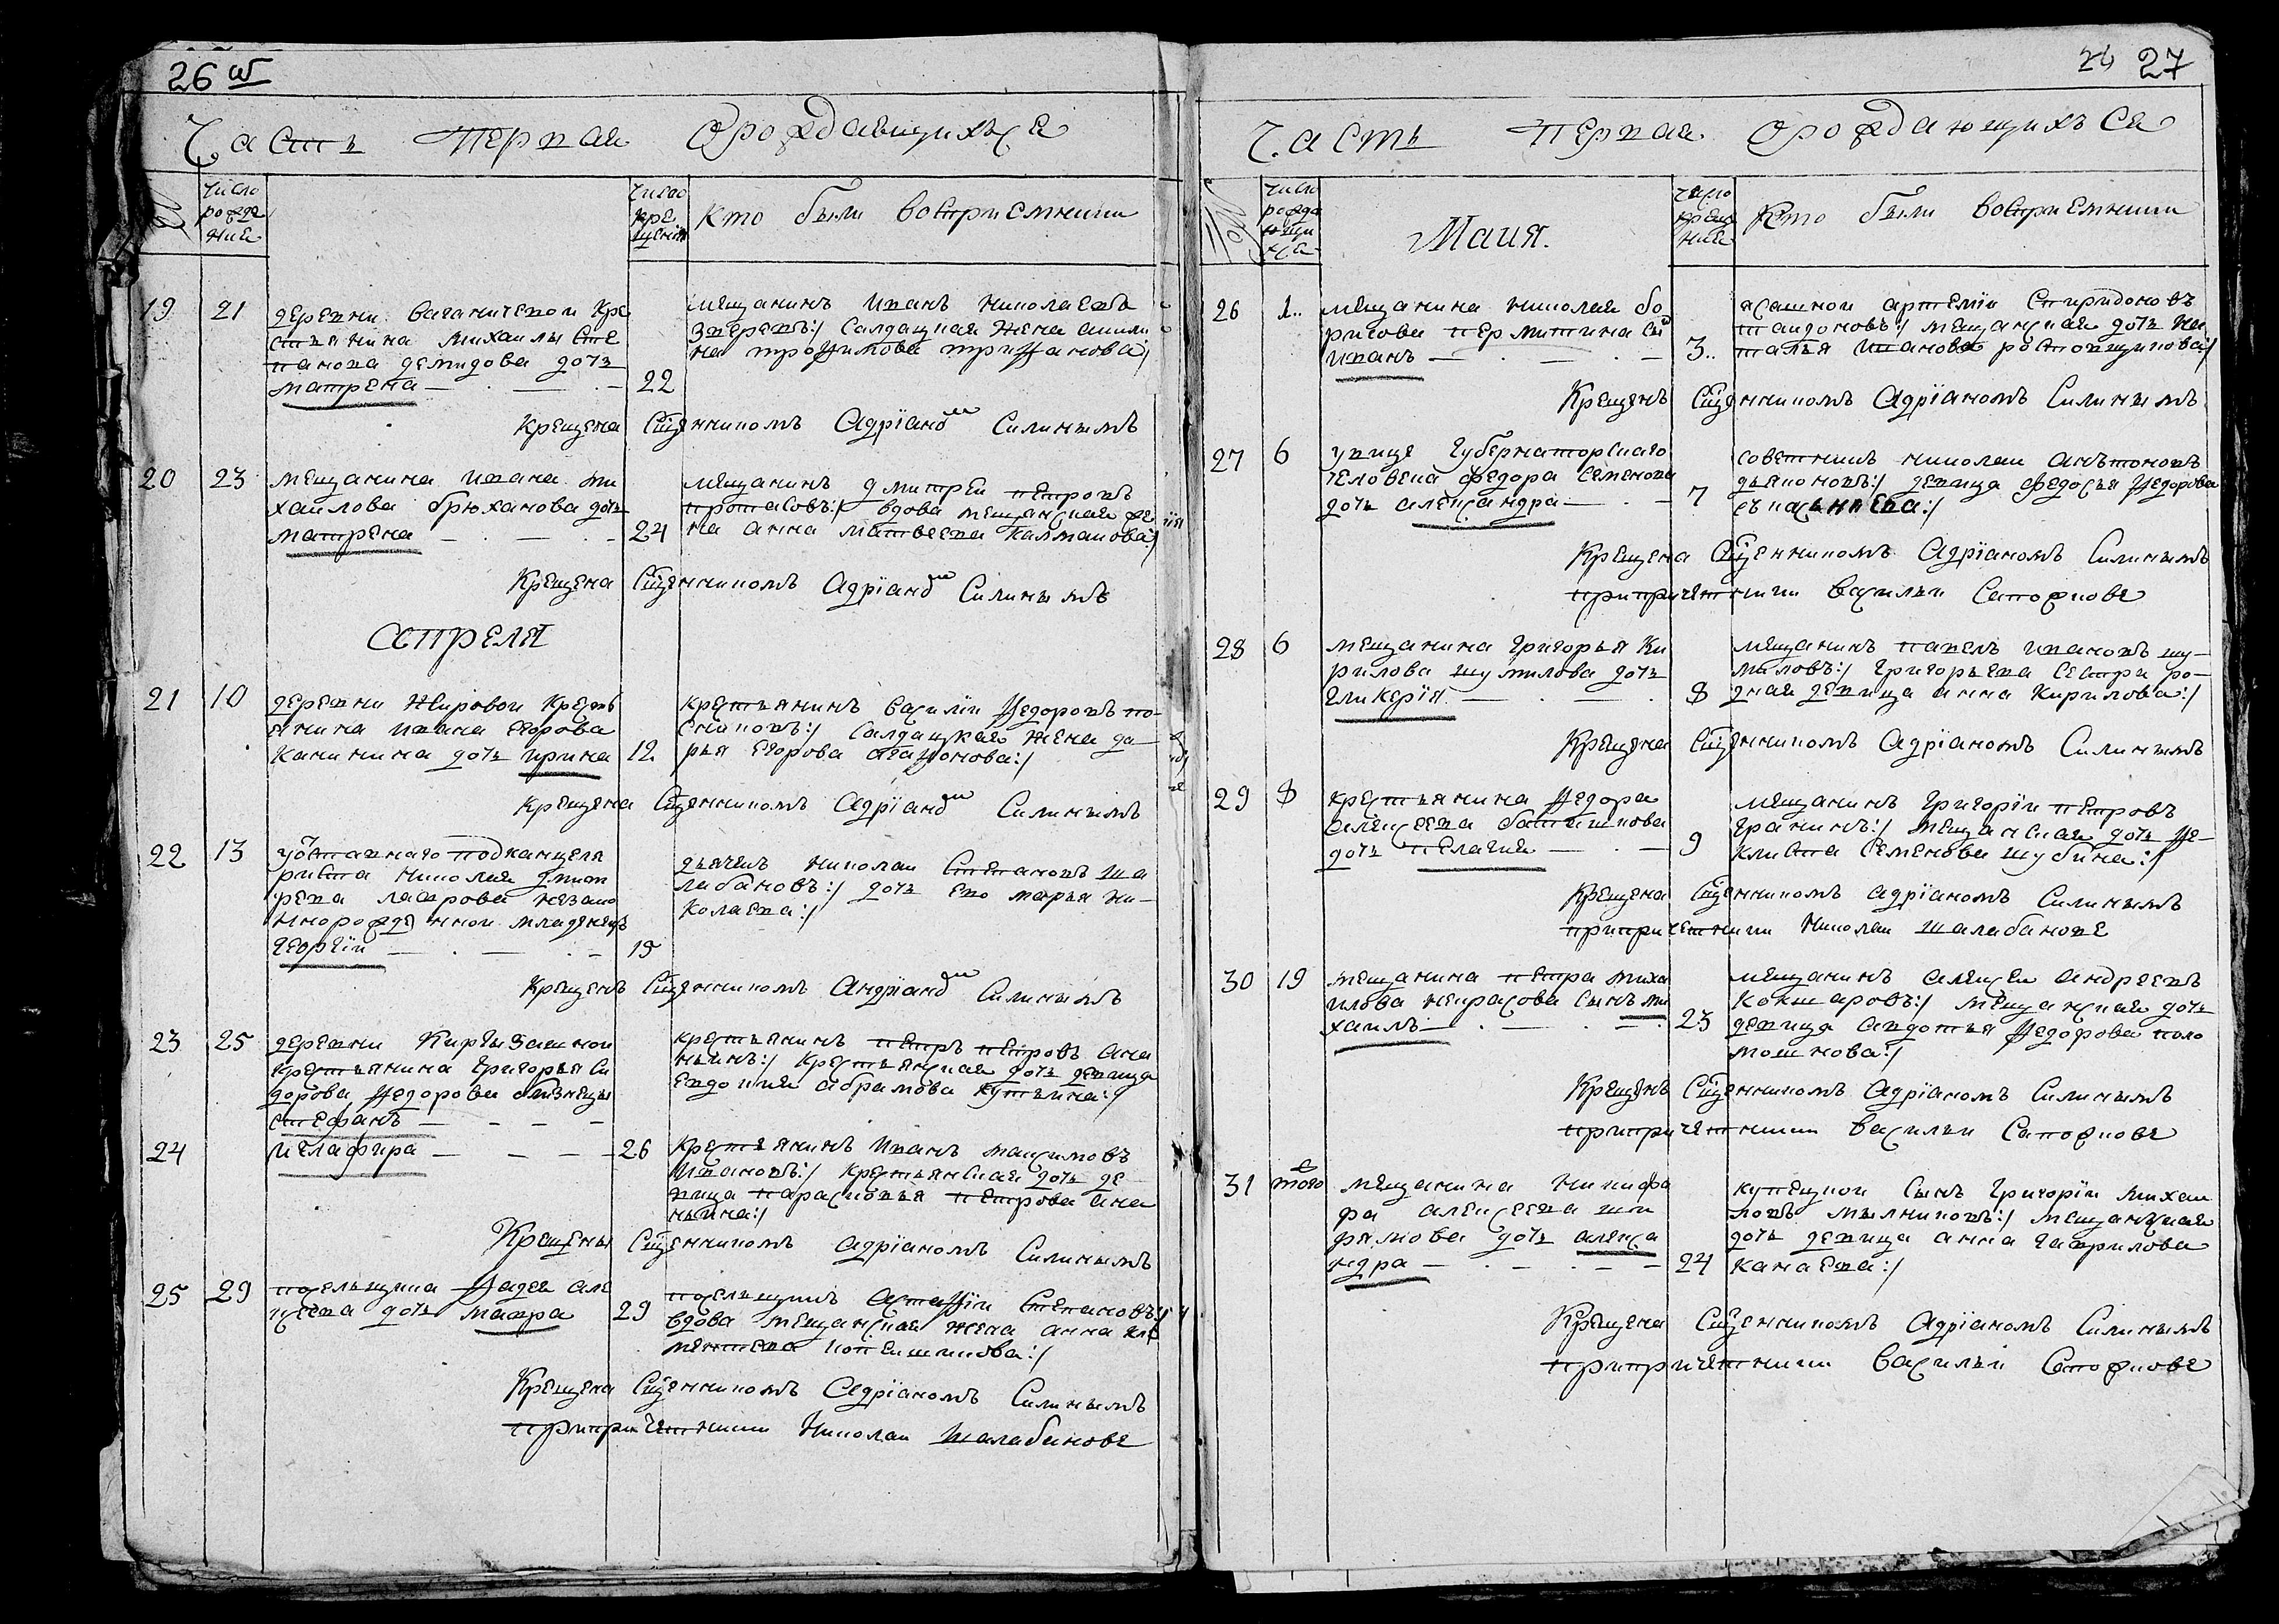 26 об
Часть первая о рождающихся
Число рождения
Число крещения
Кто были восприемники
19 21 деревни Ваганической кре
стьянина михаилы сте
панова демидова дочь
матрена 22
мещанинъ иванъ николаевъ
зверевъ:/ салдацкая жена акили
на трофимова трифанова:/
Крещена Сщенникомъ Адрiаномъ Силинымъ
20 23 мещанина ивана ми
хаилова брюханова дочь
матрена 24
мещанинъ дмитреи петровъ
протасовъ:/ вдова мещанская же
на анна матвеева калмакова:/
Крещена Сщенникомъ Адрiаномъ Силинымъ
Апреля
21 10 деревни Жировой кресть
янина ивана егорова
канинина дочь ирина 12
крестьянинъ василiи федоровъ по
сниковъ:/ салдацкая жена да
рья егорова агафонова:/
Крещена Сщенникомъ Адрiаномъ Силинымъ
22 13 уставнаго подканцеля
риста николая дмит
рева лаврова незако
ннорожденной младенецъ
георгiи 15
дьячекъ николаи степановъ ша
лабановъ:/ дочь ево марья ни
колаева:/
Крещенъ Сщенникомъ Андрiаномъ Силинымъ
23 25 деревни Киргизашной
крестьянина григорья си
дорова федорова близнецы
стефанъ
крестьянинъ петръ петровъ ана
ньинъ:/ крестьянская дочь девица
евдокия абрамова кутьина:/
24 и глафира 26
крестьянинъ иванъ максимовъ
ивановъ:/ крестьянская дочь де
вица парасковья петрова ана
ньина:/
Крещены Сщенникомъ адрiаномъ Силинымъ
25 29 посельщика фадея але
ксеева дочь мавра 29
посельщикъ астафiи степановъ:/
вдова мещанская жена анна кли
ментева копеишикова:/
Крещена Сщенникомъ Адрiаномъ Силинымъ
при причетники Николаи Шалабанове
26 27
Часть первая о рождающихъся
Число рождающихся
Маия.
Число крещения
Кто были восприемники
26 1.. мещанина николая бо
рисова пермитина сы
иванъ 3..
ясашнои артемiи спиридоновъ
таидоновъ:/ мещанская дочь на
талья иванова ростовщикова:/
Крещенъ Сщенникомъ Адрiаномъ Силинымъ
27 6 увице губернаторскаго
человека федора семенова
дочь александра 7
советникъ николаи антоновъ
дьяконовъ:/ девица федосья федорова
Крещена Сщенникомъ Адрiаномъ Силинымъ
при причетники Василья Сапожкове
28 6 мещанина григорья ки
рилова шумилова дочь
гликерiя 8
мещанинъ павелъ ивановъ шу
миловъ:/ григорьева сестра ро
дная девица анна кирилова:/
Крещена Сщенникомъ Адрiаномъ Силинымъ
29 8 крестьянина федора
алексеева батишкова
дочь пелагия 9
мещанинъ григорiи петровъ
гранинъ:/ мещанская дочь фе
клиста семенова шубина:/
Крещена Сщенникомъ адрiаномъ Силинымъ
при причетники Николаи Шалабанове
30 19 мещанина петра миха
илова некрасова сынъ ми
хаилъ 23
мещанинъ алексеи андреевъ
кокшаровъ:/ мещанская дочь
девица авдотья федорова поло
мошнова:/
Крещенъ Сщенникомъ Адрiаномъ Силинымъ
при причетники Василья Сапожкове
31 тогоже мещанина никифо
ра алексеева
дочь алекса
ндра 24
купецкои сынъ григорiи михаи
ловъ мылниковъ:/ мещанская
дочь девица анна гаврилова
канаева:/
Крещена Сщенникомъ Адрiаномъ Силинымъ
при причетники Василья Сапожкове